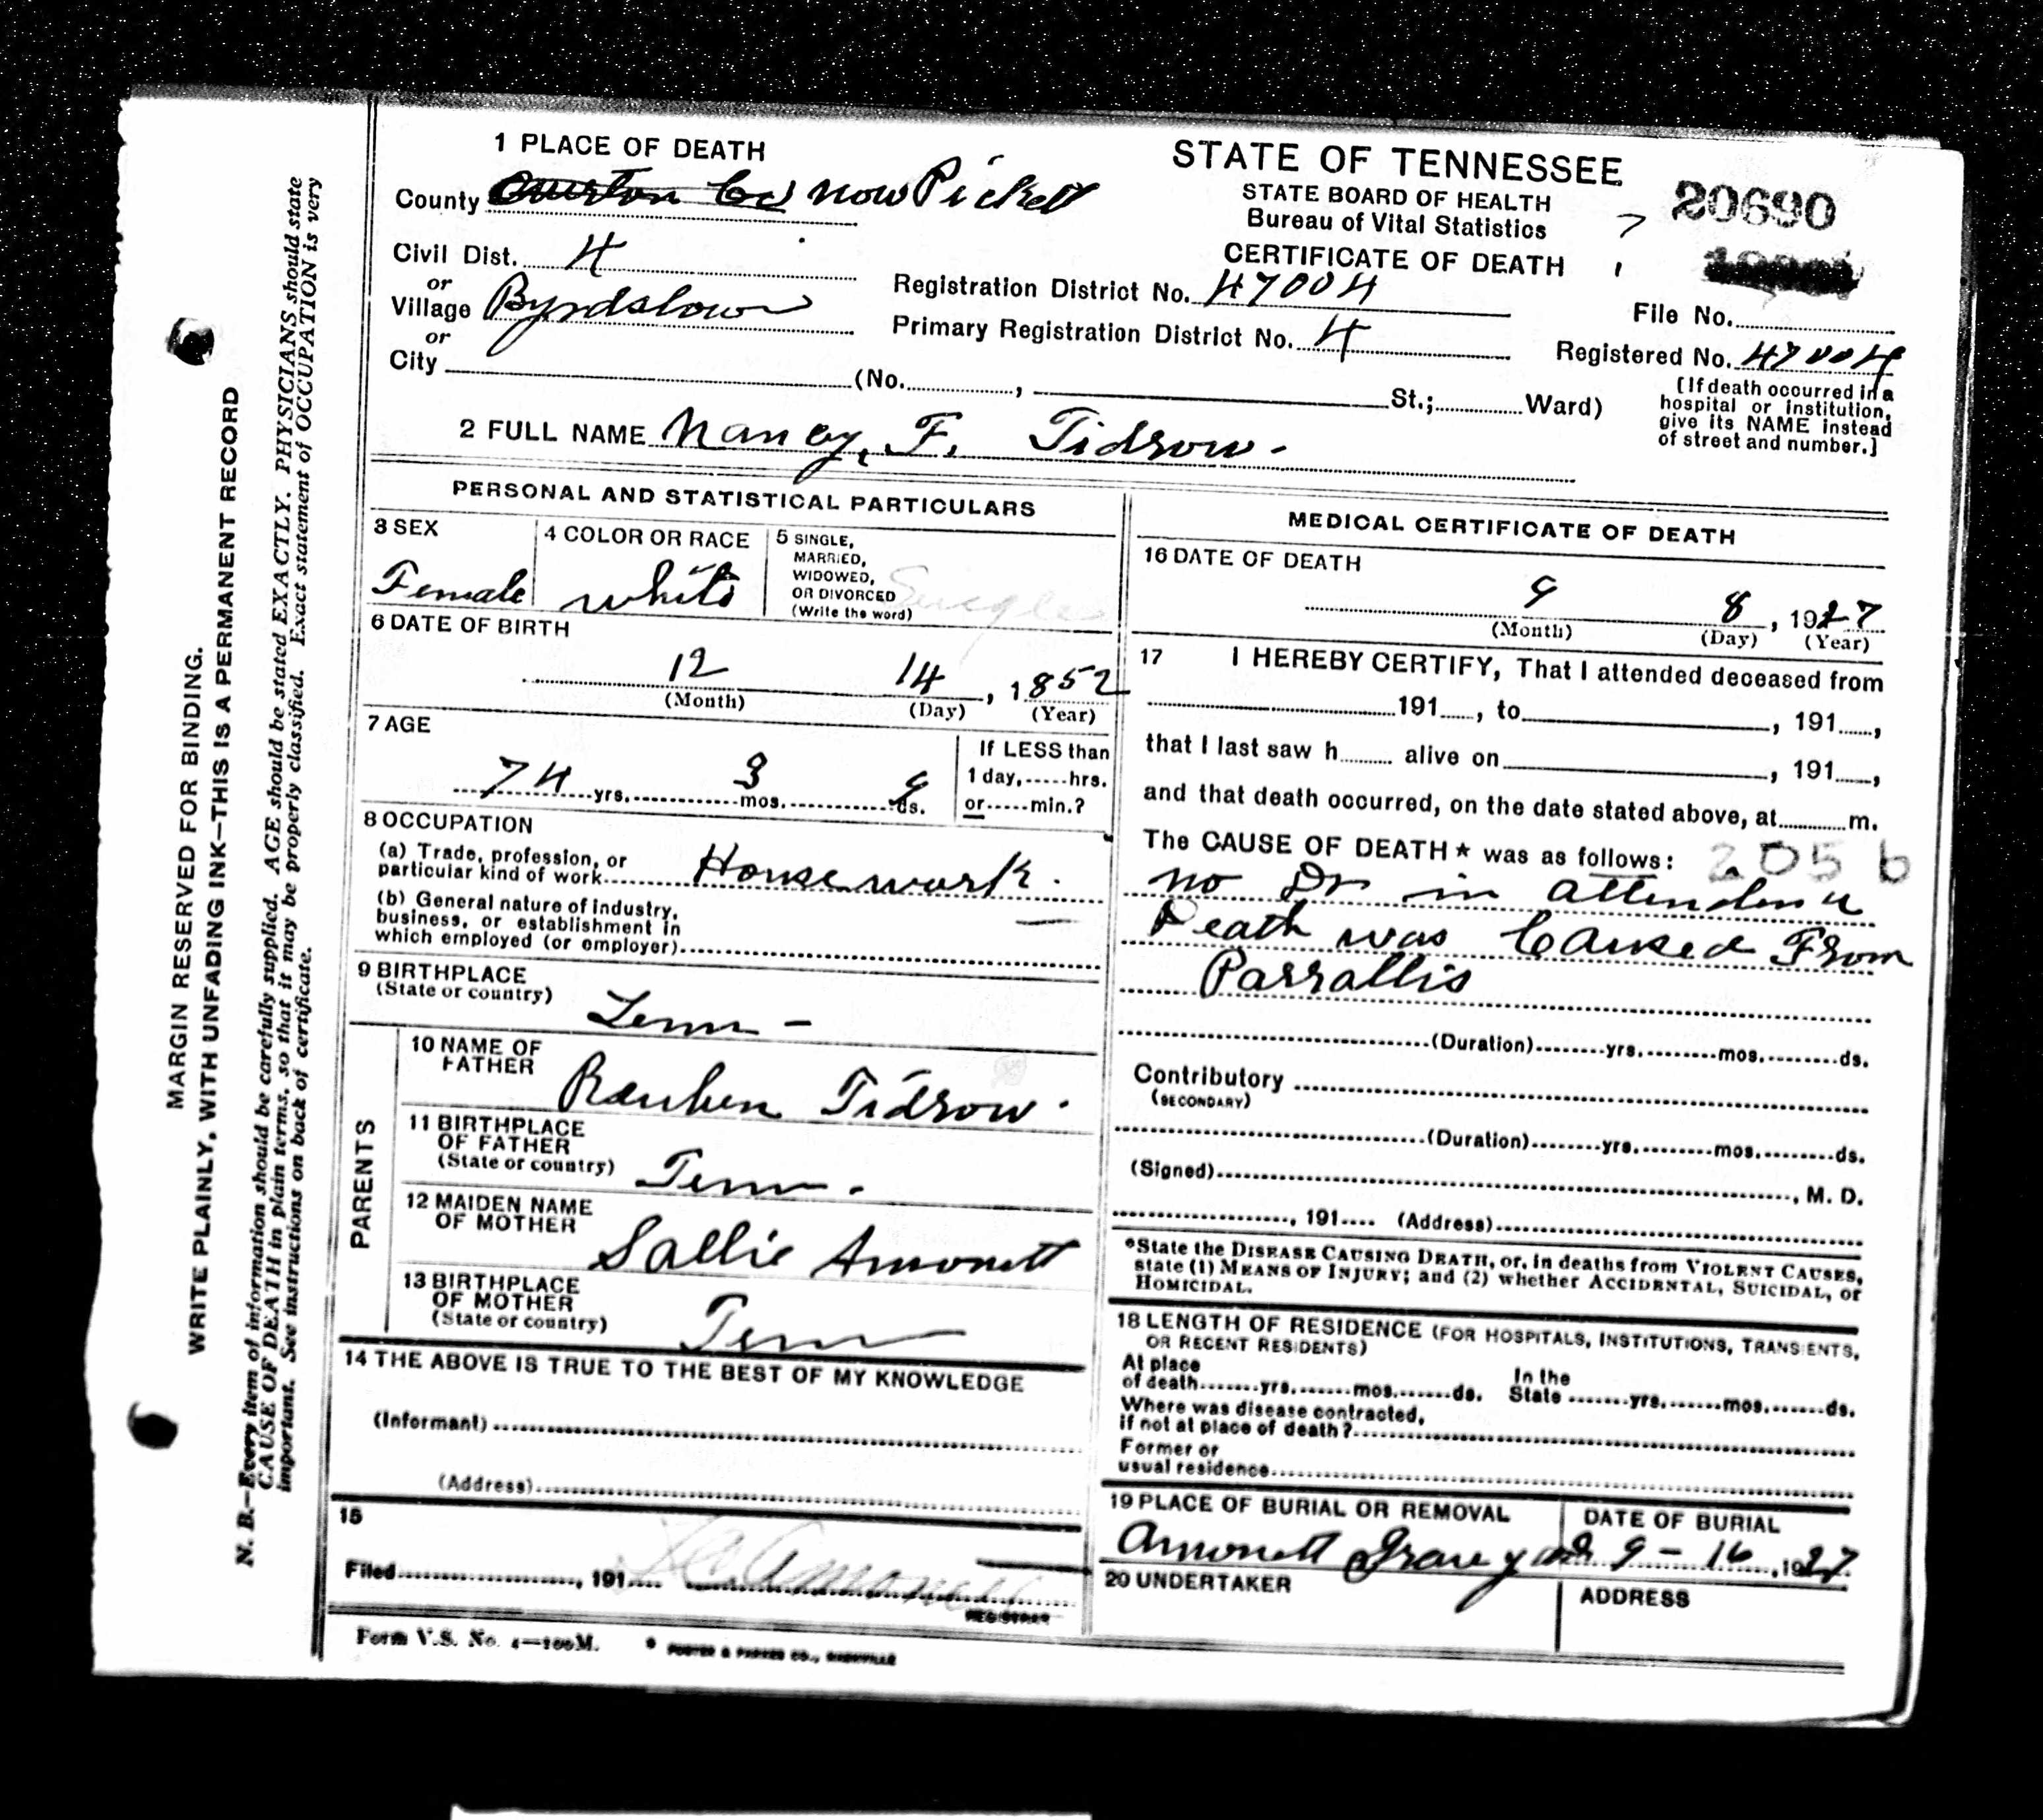 1 PLACE OF DEATH
County Overton Co now Pickett
Civil Dist. 4
or
Village Byrdstown
or
City (No. , St.; Ward)
STATE OF TENNESSEE
STATE BOARD OF HEALTH
Bureau of Vital Statistics
CERTIFICATE OF DEATH
20690
Registration District No. 47004
File No.
Primary Registration District No. 4
Registered No. 47004
[If death occurred in a
hospital or institution,
give its NAME instead
of street and number.]
2 FULL NAME Nancy, F. Tidrow -
PERSONAL AND STATISTICAL PARTICULARS
3 SEX
Female
4 COLOR OR RACE
white
5 SINGLE,
MARRIED,
WIDOWED,
OR DIVORCED
(Write the word)
Single
6 DATE OF BIRTH
12 14, 1852
(Month) (Day) (Year)
7 AGE
74 yrs. 3 mos. 9 ds.
If LESS than
1 day, hrs.
or min.?
8 OCCUPATION
(a) Trade, profession, or
particular kind of work Housework.
(b) General nature of industry,
business, or establishment in
which employed (or employer) —
9 BIRTHPLACE
(State or country)
Tenn -
PARENTS
10 NAME OF
FATHER
Reuben Tidrow.
11 BIRTHPLACE
OF FATHER
(State or country)
Tenn.
12 MAIDEN NAME
OF MOTHER
Sallie Amonett
13 BIRTHPLACE
OF MOTHER
(State or country)
Tenn
14 THE ABOVE IS TRUE TO THE BEST OF MY KNOWLEDGE
(Informant)
(Address)
15
Filed , 191 Amonett
REGISTRAR
Form V.S. No. 4—100M.
FOSTER & PARKES CO., NASHVILLE
MEDICAL CERTIFICATE OF DEATH
16 DATE OF DEATH
9 8, 1927
(Month) (Day) (Year)
17 I HEREBY CERTIFY, That I attended deceased from
191 , to , 191 ,
that I last saw h alive on , 191 ,
and that death occurred, on the date stated above, at m.
The CAUSE OF DEATH* was as follows: 205 b
no Dr in attendence
Death was Caused From
Parrallis
(Duration) yrs. mos. ds.
Contributory
(SECONDARY)
(Duration) yrs. mos. ds.
(Signed) , M. D.
, 191 (Address)
*State the DISEASE CAUSING DEATH, or, in deaths from VIOLENT CAUSES,
state (1) MEANS OF INJURY; and (2) whether ACCIDENTAL, SUICIDAL, or
HOMICIDAL.
18 LENGTH OF RESIDENCE (FOR HOSPITALS, INSTITUTIONS, TRANSIENTS,
OR RECENT RESIDENTS)
At place
of death yrs. mos. ds.
In the
State yrs. mos. ds.
Where was disease contracted,
if not at place of death?
Former or
usual residence
19 PLACE OF BURIAL OR REMOVAL
Amonett Grave yard
DATE OF BURIAL
9 - 16, 1927
20 UNDERTAKER
ADDRESS
MARGIN RESERVED FOR BINDING.
WRITE PLAINLY, WITH UNFADING INK—THIS IS A PERMANENT RECORD
N. B.—Every item of information should be carefully supplied. AGE should be stated EXACTLY. PHYSICIANS should state
CAUSE OF DEATH in plain terms, so that it may be properly classified. Exact statement of OCCUPATION is very
important. See instructions on back of certificate.